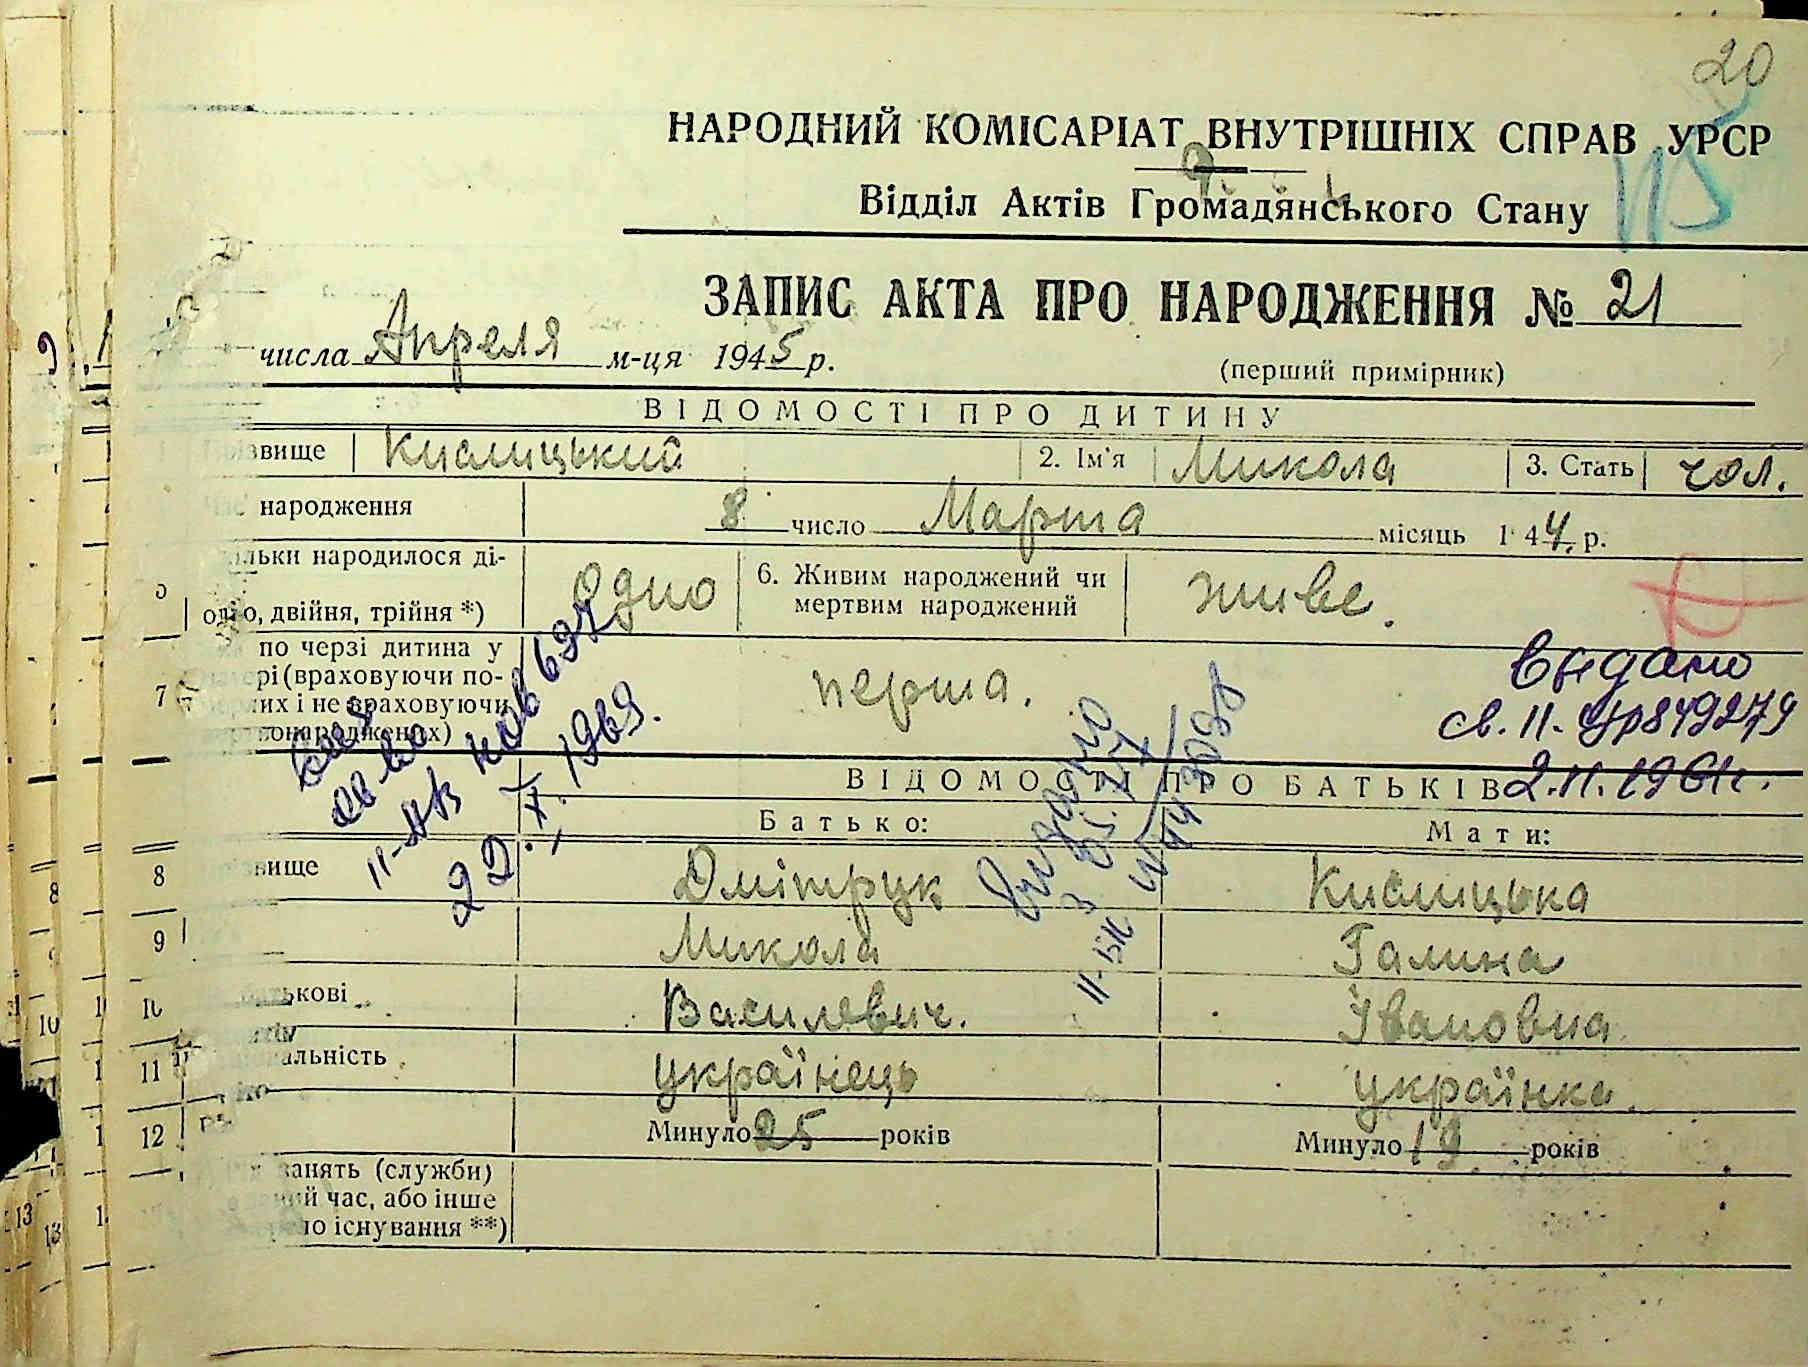 20
НАРОДНИЙ КОМІСАРІАТ ВНУТРІШНІХ СПРАВ УРСР
Відділ Актів Громадянського Стану
ЗАПИС АКТА ПРО НАРОДЖЕННЯ № 21
числа Апреля м-ця 1945 р.
(перший примірник)
ВІДОМОСТІ ПРО ДИТИНУ
звище Кислицький 2. Ім'я Микола 3. Стать чол.
народження 8 число Марта місяць 1 44. р.
ільки народилося ді-
о, двійня, трійня *) одно 6. Живим народжений чи
мертвим народжений живе.
7 по черзі дитина у
ері (враховуючи по-
мерлих і не враховуючи
народжених) перша.
Видано
св. II-УР 849274
2.II.1961г.
22.X.1969.
ВІДОМОСТІ ПРО БАТЬКІВ
Батько: Мати:
8 звище Дмітрук Кислицька
9 Микола Галина
10 батькові Василевич. Івановна
11 альність українець українка.
12 Минуло 25 років Минуло 19 років
занять (служби)
й час, або інше
о існування **)